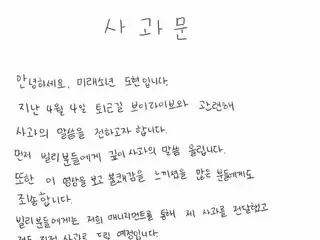 사과문
안녕하세요. 미래소년 도현입니다.
지난 4월 4일 퇴근길 브이라이브와 관련해
사과의 말씀을 전하고자 합니다.
먼저 빌리분들에게 깊이 사과의 말씀 올립니다.
또한 이 영상을 보고 불쾌감을 느끼셨을 많은 분들에게도
죄송합니다.
빌리분들에게는 저희 매니지먼트를 통해 제 사과를 전달했고
직접 사과를 드릴 예정입니다.